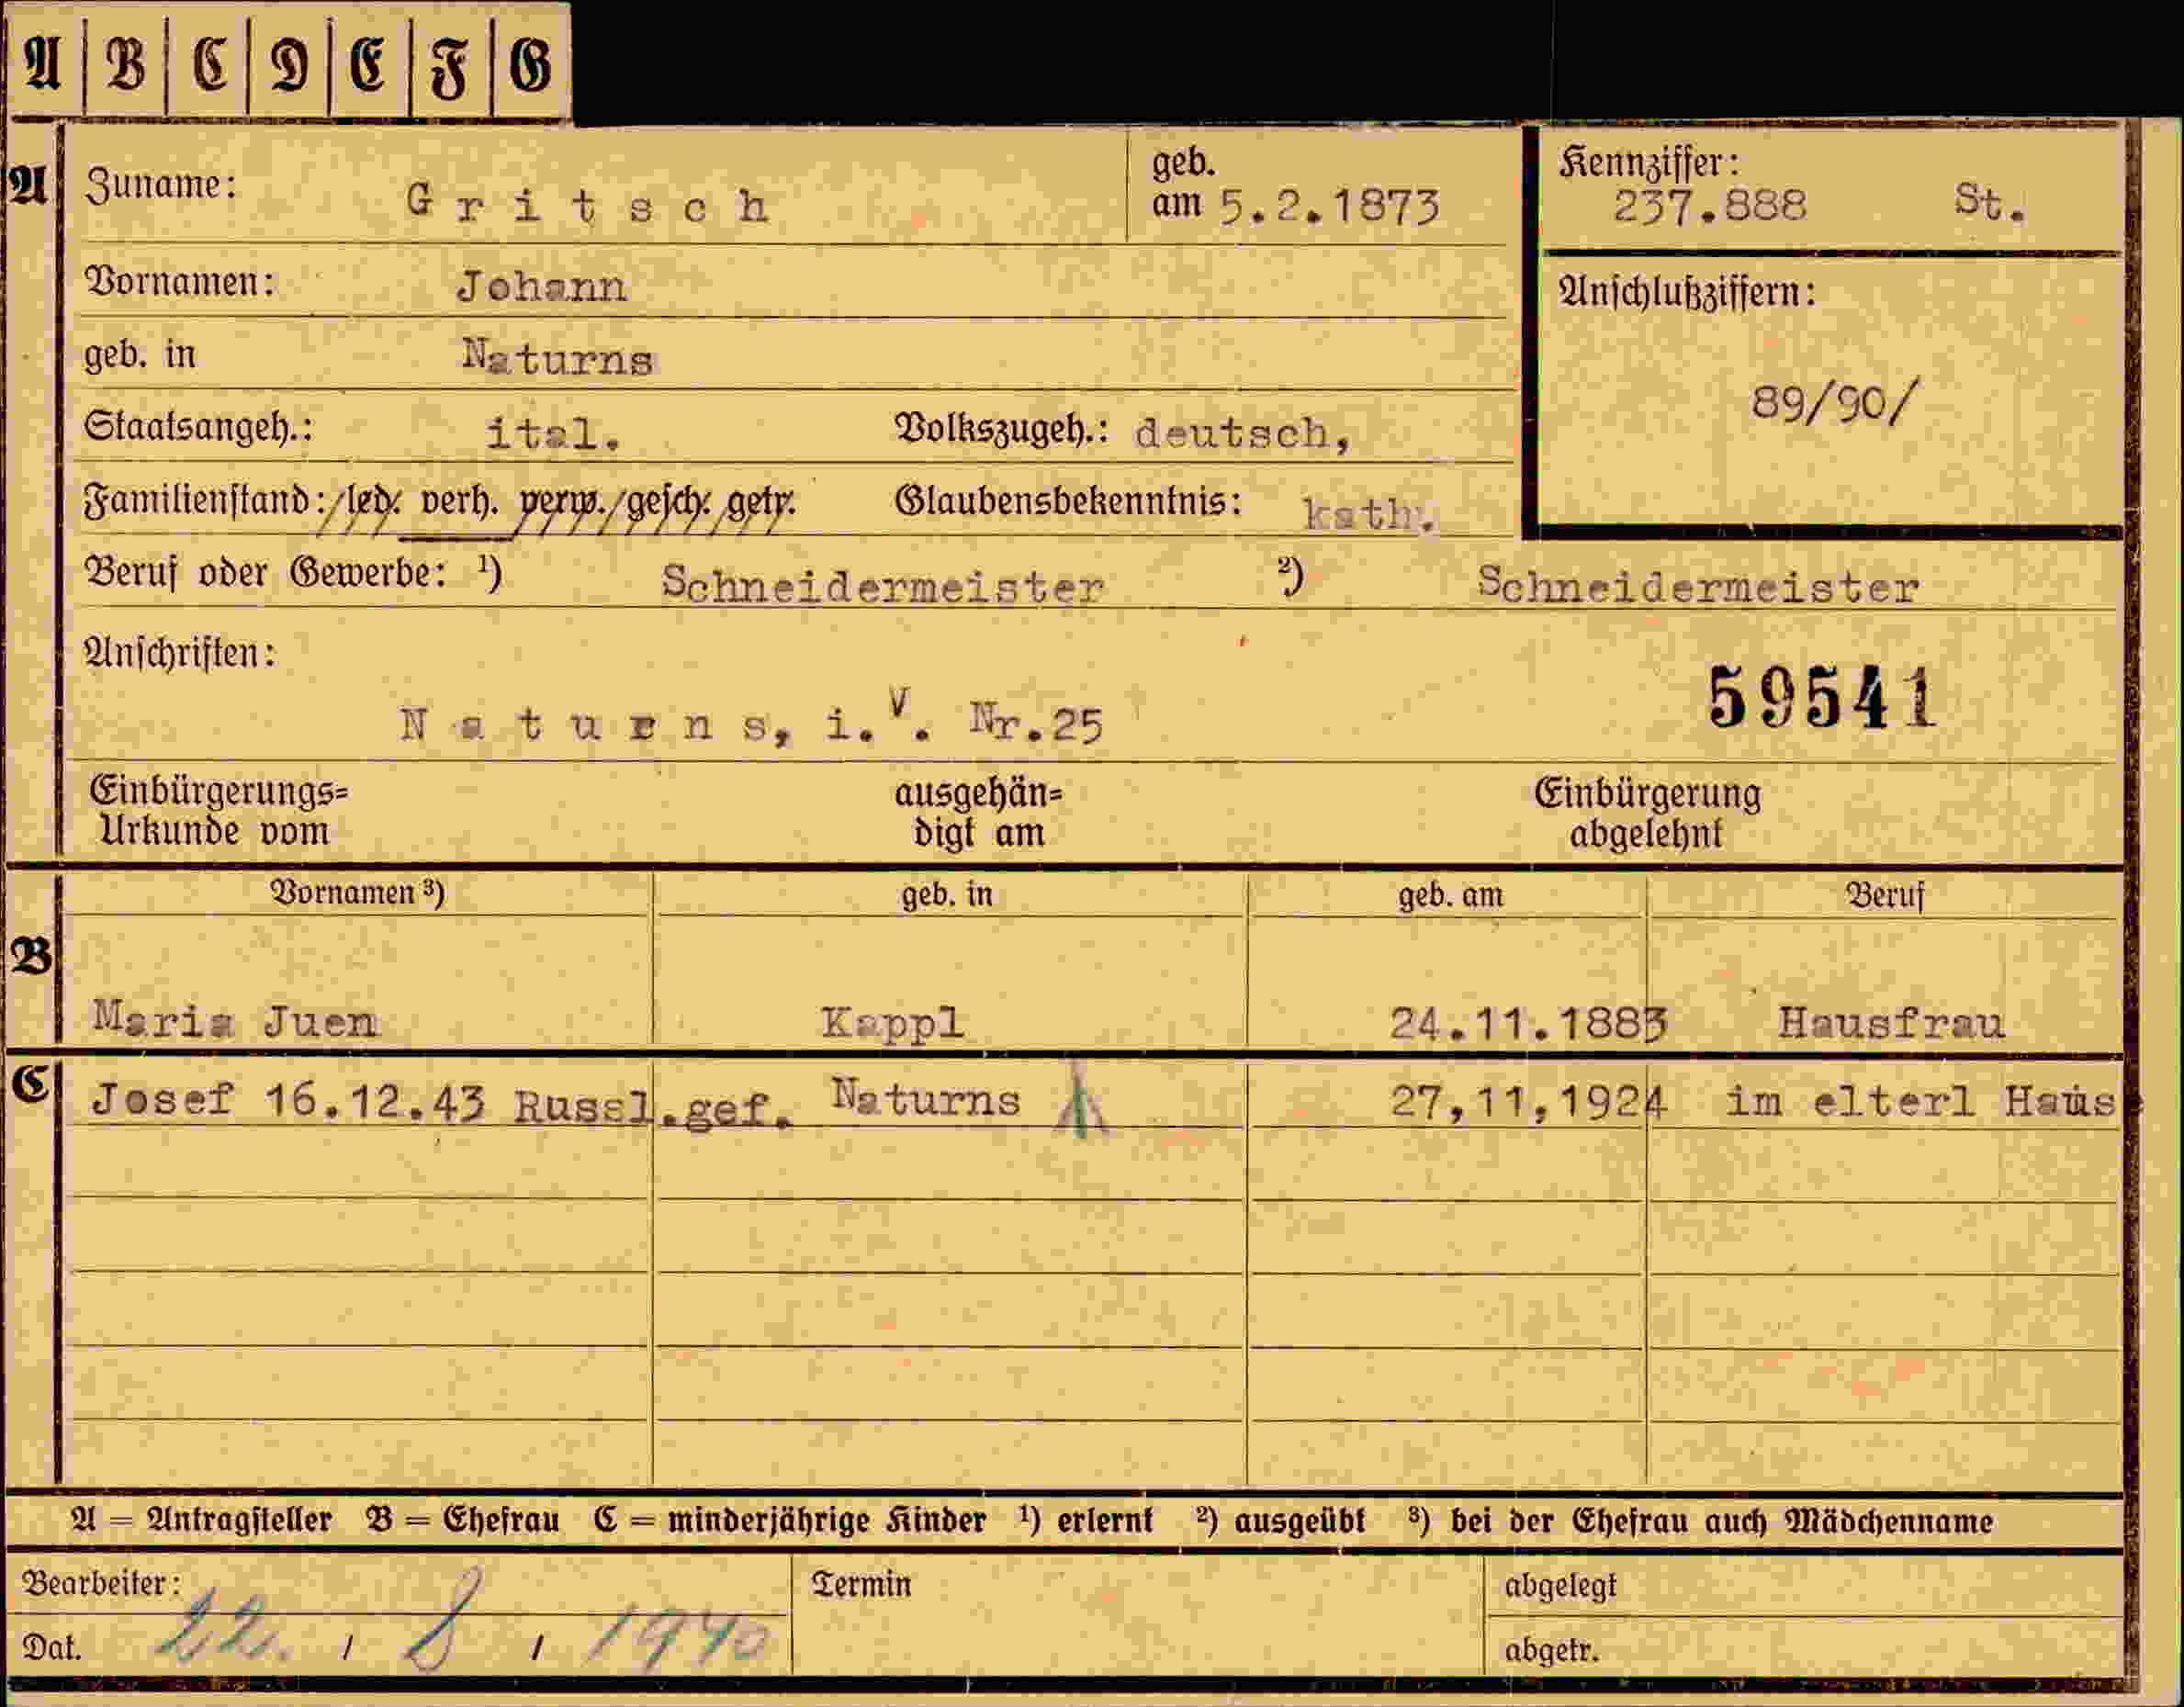 A | B | C | D | E | F | G
A Zuname: Gritsch geb. am 5.2.1873 Kennziffer: 237.888 St.
Vornamen: Johann Anschlußziffern:
geb. in Naturns 89/90/
Staatsangeh.: ital. Volkszugeh.: deutsch,
Familienstand: led. verh. verw. gesch. getr. Glaubensbekenntnis: kath.
Beruf oder Gewerbe: ¹) Schneidermeister ²) Schneidermeister
Anschriften: 59541
Naturns, i.V. Nr.25
Einbürgerungs= ausgehän= Einbürgerung
Urkunde vom digt am abgelehnt
Vornamen ³) geb. in geb. am Beruf
B
Maria Juen Kappl 24.11.1883 Hausfrau
C Josef 16.12.43 Russl.gef. Naturns 27,11,1924 im elterl Haus
A = Antragsteller B = Ehefrau C = minderjährige Kinder ¹) erlernt ²) ausgeübt ³) bei der Ehefrau auch Mädchenname
Bearbeiter: Termin abgelegt
Dat. 22. / 8 / 1940 abgetr.